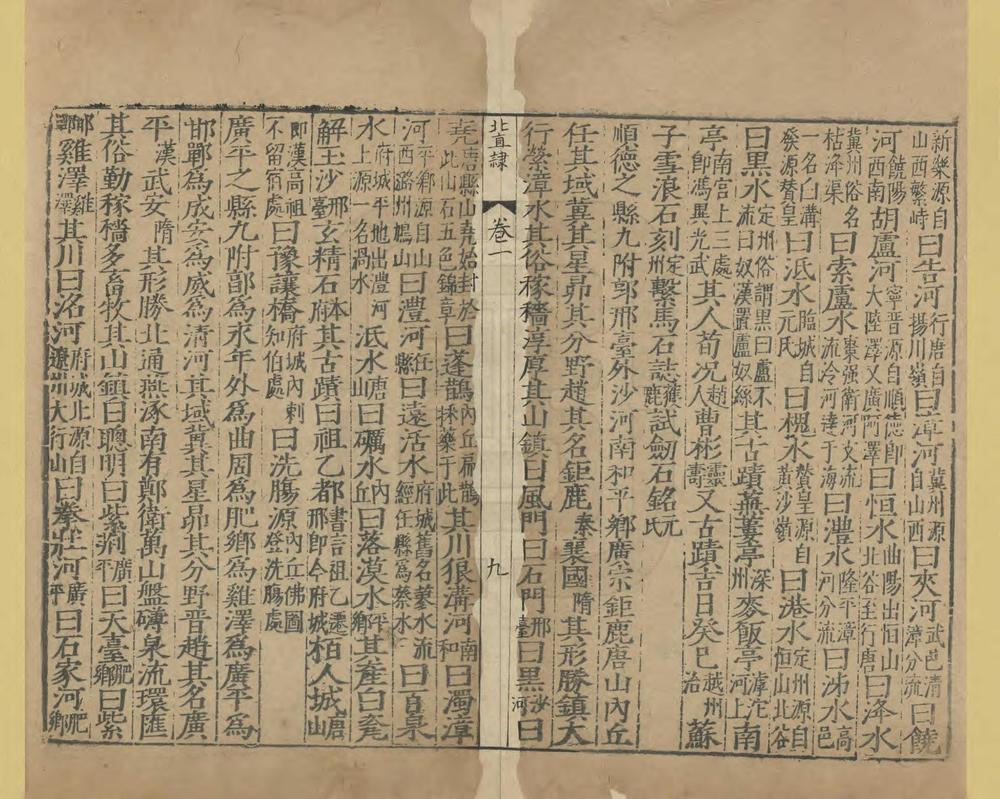 新樂源自山西繁峙曰告河行唐自揚川嶺曰漳河冀州源自山西曰夾河武邑清漳分流曰饒
河饒陽西南胡盧河寧晉源自順德即大陸澤又廣阿澤曰恒水曲陽出恒山北谷至行唐曰洚水
冀州俗名枯洚渠曰索盧水棗强衛河支流流冷河達于海曰澧水隆平漳河分流曰泲水高邑
一名臼溝癸源贊皇曰泜水臨城自元氏曰槐水贊皇源自黃沙嶺曰水定州源自恒山北谷
曰黑水定州俗謂黑曰盧不流曰奴漢置盧奴縣其古蹟蕪蔞亭深州麥飯亭滹沱河上南
亭南宮上三處卽馮異光武其人荀况趙曹彬靈壽又古蹟吉日癸巳越州治蘇
子雪浪石刻定州繫馬石誌獲鹿試劍石銘元氏
順德之縣九附郭邢臺外沙河南和平鄉廣宗鉅鹿唐山內丘
任其域冀其星昴其分野趙其名鉅鹿秦襄國隋其形勝鎮太
行縈漳水其俗稼穡淳厚其山鎮曰風門曰石門邢臺曰黑沙河曰
北直隸 卷一 九
堯唐縣山堯始封於此山石五色錦章曰蓬鵲內丘扁鵲採藥于此其川狼溝河南和曰濁漳
河平鄉源自山西潞州鳩山曰澧河任縣曰遠活水府城舊名蓼水流經任縣為蔡水曰百泉
水府城平地出澧河水上源一名渦水泜水唐山曰礪水內丘曰落漠水平鄉其產白瓷
解玉沙邢臺玄精石本府其古蹟曰祖乙都書言祖乙遷邢卽今府城柏人城唐山
即漢高祖不留宿處曰豫讓橋府城內刺知伯處曰洗腸源內丘佛圖登洗腸處
廣平之縣九附郭為永年外為曲周為肥鄉為雞澤為廣平為
邯鄲為成安為威為清河其域冀其星昴其分野晉趙其名廣
平漢武安隋其形勝北通燕涿南有鄭衛萬山盤礴泉流環匯
其俗勤稼穡多畜牧其山鎮曰聰明曰紫荊廣平曰天臺肥鄉曰紫
邯鄲雞澤雞澤其川曰洺河府城北源自遼州太行山曰河廣平曰石家河肥鄉